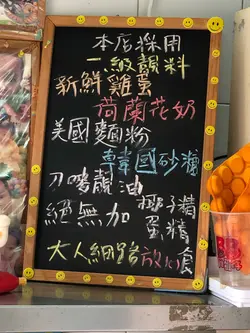 本店採用
一級靚料
新鮮雞蛋
荷蘭花奶
美國麵粉
韓國砂糖
刀嘜靚油
絕無加 椰子精
蛋精
大人細路放心食